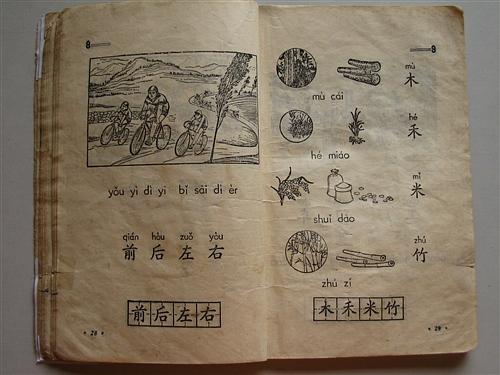 8
yǒu yì dì yī bǐ sài dì èr
qián hòu zuǒ yòu
前 后 左 右
前后左右
·28·
8
mù
木
mù cái
hé
禾
hé miáo
mǐ
米
shuǐ dào
zhú
竹
zhú zǐ
木禾米竹
·29·